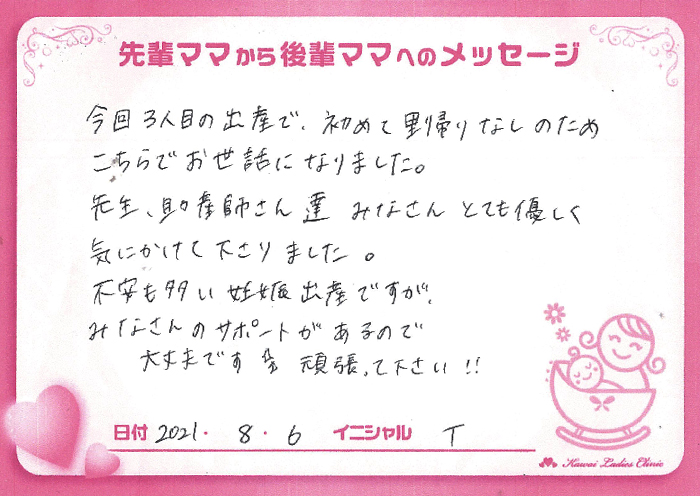 先輩ママから後輩ママへのメッセージ
今回3人目の出産で、初めて里帰りなしのため
こちらでお世話になりました。
先生、助産師さん達 みなさん とても優しく
気にかけて下さりました。
不安も多い妊娠出産ですが、
みなさんのサポートがあるので
大丈夫です 頑張って下さい!!
日付 2021・8・6 イニシャル T
Kawai Ladies Clinic